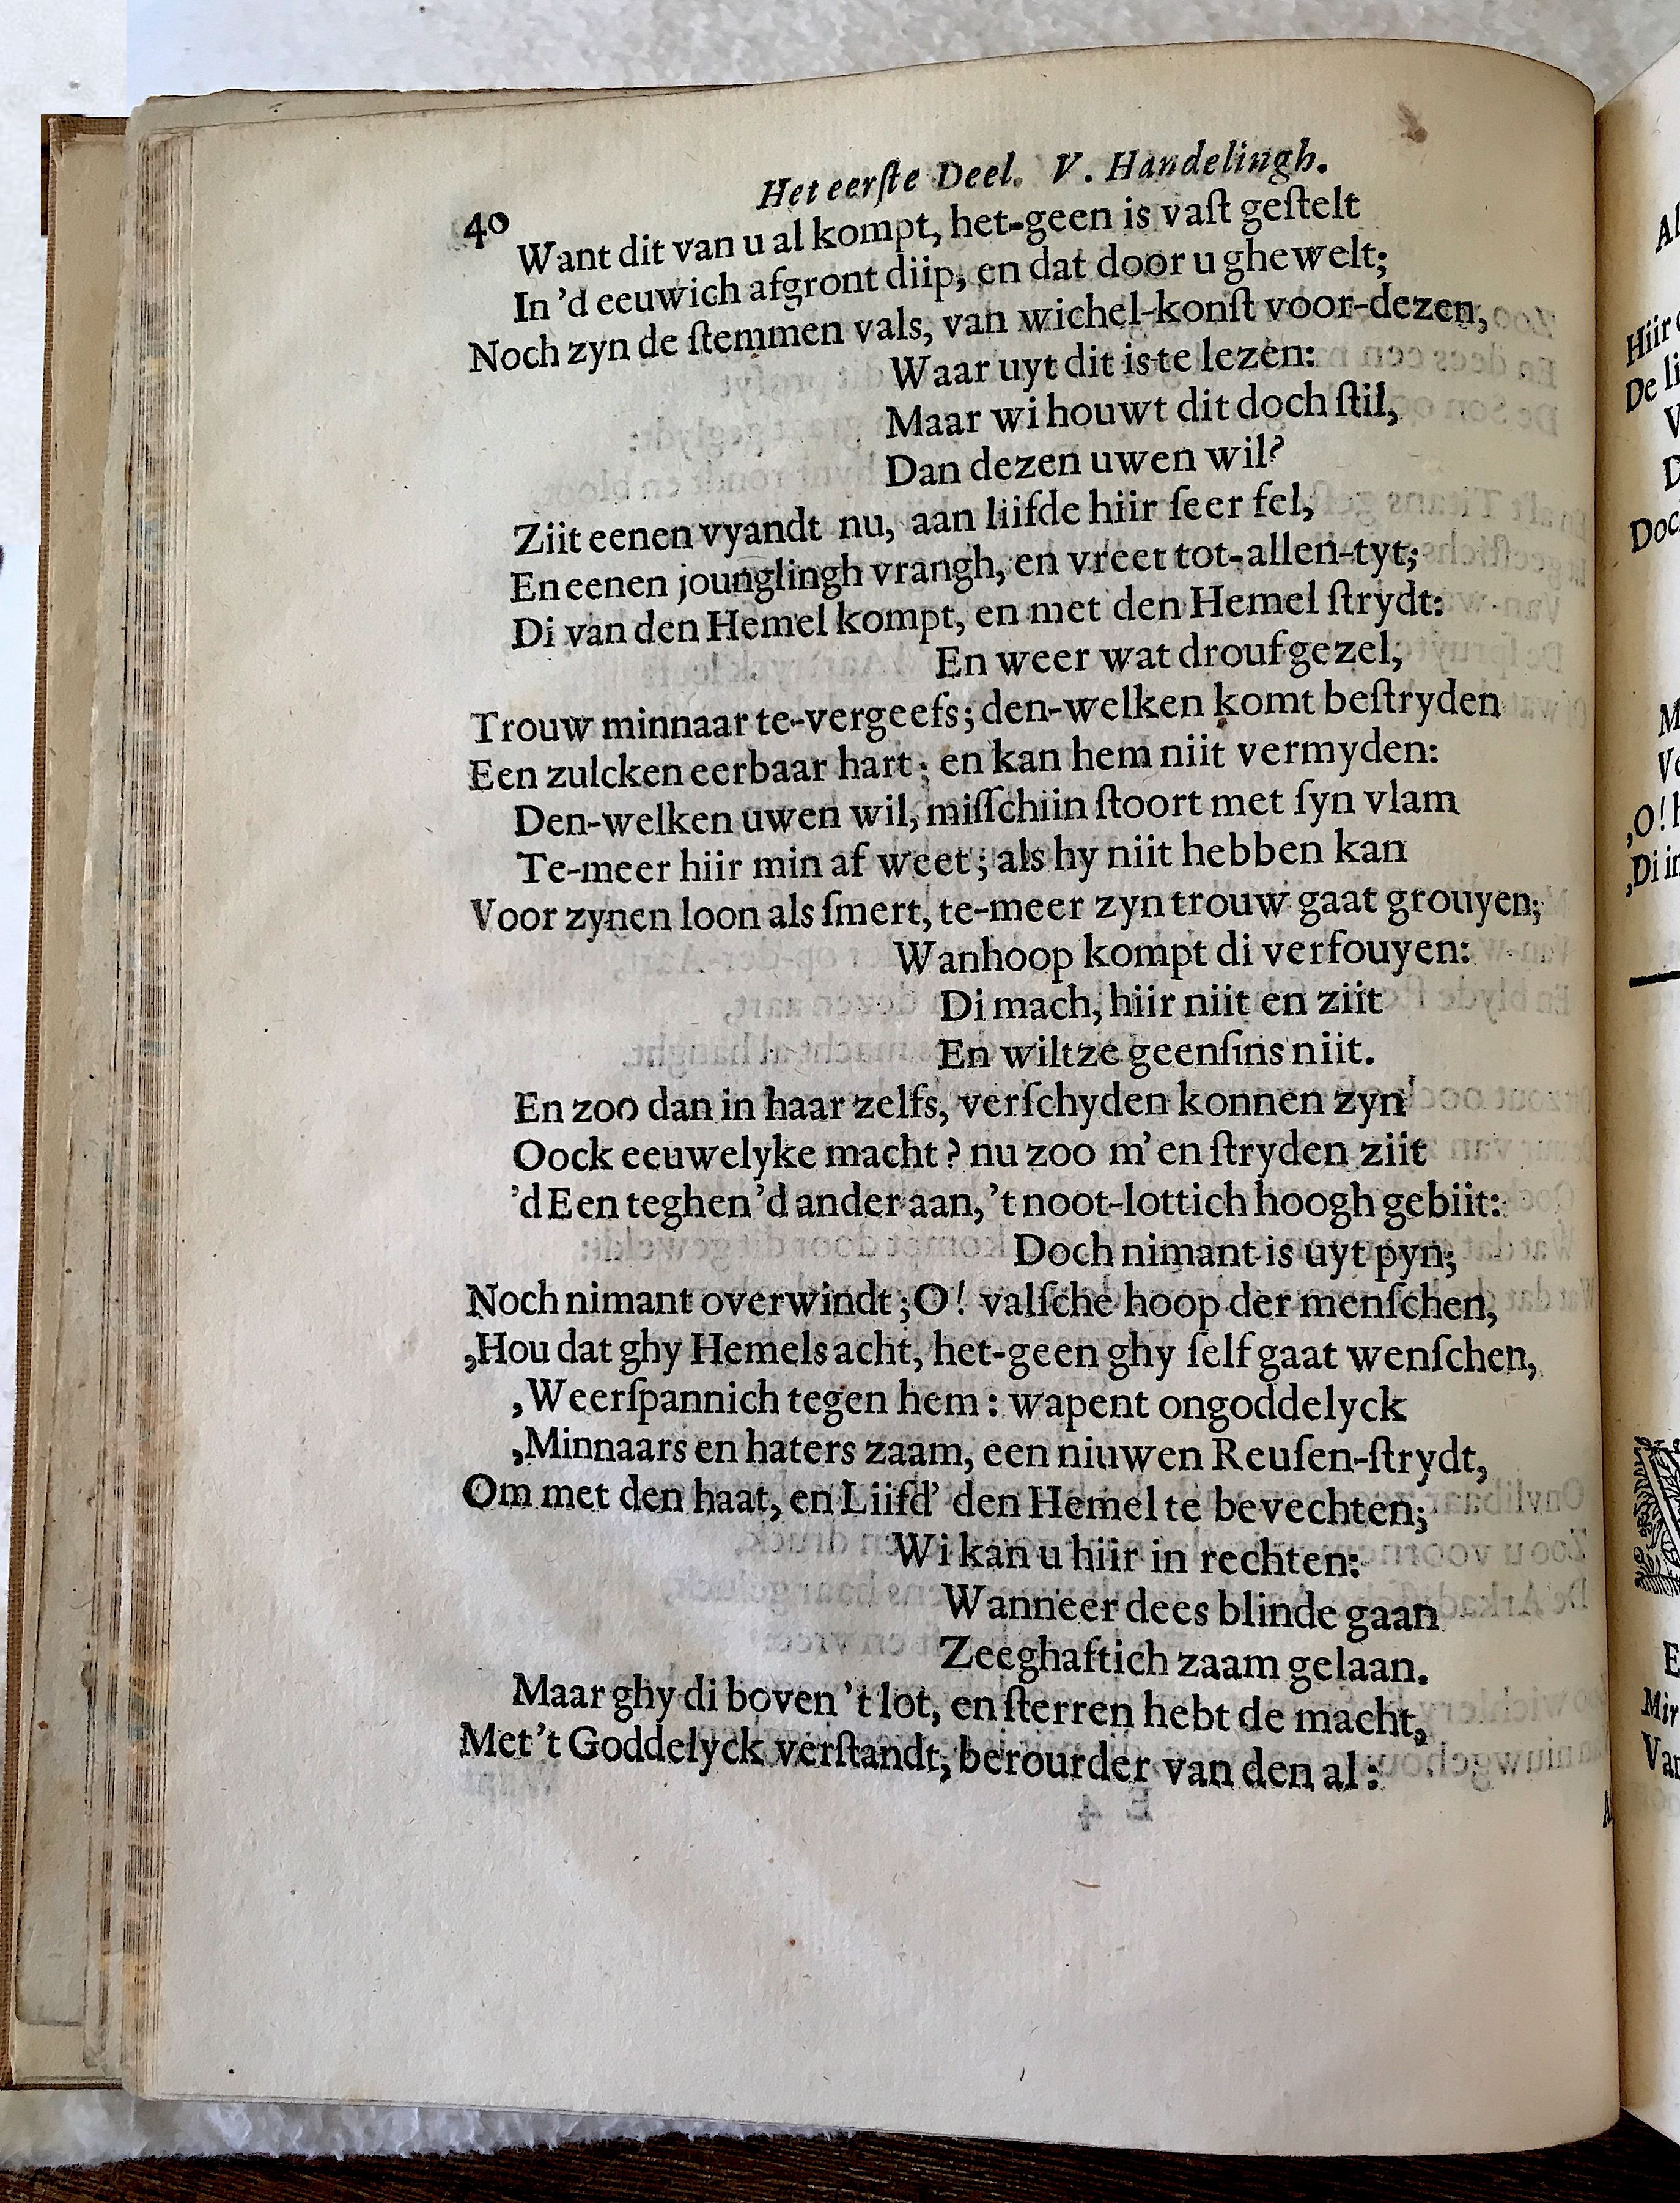 Het eerſte Deel. V. Handelingh.
40
Want dit van u al kompt, het-geen is vaſt geſtelt
In 'd eeuwich afgront diip, en dat door u ghewelt;
Noch zyn de ſtemmen vals, van wichel-konſt voor-dezen,
Waar uyt dit is te lezen:
Maar wi houwt dit doch ſtil,
Dan dezen uwen wil?
Ziit eenen vyandt nu, aan liifde hiir ſeer fel,
En eenen jounglingh vrangh, en vreet tot-allen-tyt;
Di van den Hemel kompt, en met den Hemel ſtrydt:
En weer wat drouf gezel,
Trouw minnaar te-vergeefs; den-welken komt beſtryden
Een zulcken eerbaar hart; en kan hem niit vermyden:
Den-welken uwen wil, miſſchiin ſtoort met ſyn vlam
Te-meer hiir min af weet; als hy niit hebben kan
Voor zynen loon als ſmert, te-meer zyn trouw gaat grouyen;
Wanhoop kompt di verfouyen:
Di mach, hiir niit en ziit
En wiltze geenſins niit.
En zoo dan in haar zelfs, verſchyden konnen zyn
Oock eeuwelyke macht? nu zoo m' en ſtryden ziit
'd Een teghen 'd ander aan, 't noot-lottich hoogh gebiit:
Doch nimant is uyt pyn;
Noch nimant overwindt; O! valſche hoop der menſchen,
,Hou dat ghy Hemels acht, het-geen ghy ſelf gaat wenſchen,
,Weerſpannich tegen hem: wapent ongoddelyck
,Minnaars en haters zaam, een niuwen Reuſen-ſtrydt,
Om met den haat, en Liifd' den Hemel te bevechten;
Wi kan u hiir in rechten:
Wanneer dees blinde gaan
Zeeghaftich zaam gelaan.
Maar ghy di boven 't lot, en ſterren hebt de macht,
Met 't Goddelyck verſtandt, berourder van den al: